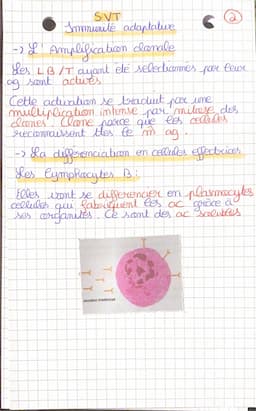 SVT
Immunité adaptative
②
-> L'Amplification clonale
Les LB/T ayant été sélectionnés par leur
ag sont activés
Cette activation se traduit par une
multiplication intense par mitose des
clones. Clone parce que les cellules
reconnaissent ttes le m̂ ag.
-> La différenciation en cellules effectrices
Les Lymphocytes B:
Elles vont se différencier en plasmocytes
cellules qui fabriquent les ac grâce à
ses organites. Ce sont des ac solubles